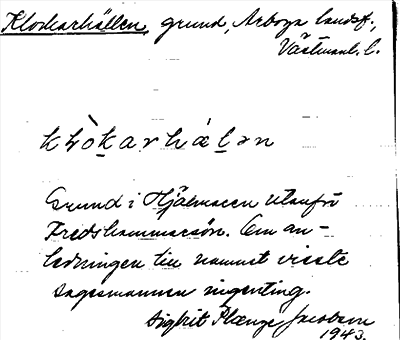 Klockarhällen, grund, Arboga landsf.,
Västmanl. l.
Grund i Hjälmaren utanför
Fridshammarsön. Om an-
ledningen till namnet visste
sagesmannen ingenting.
Sigbrit Plænge Jacobson
1943.